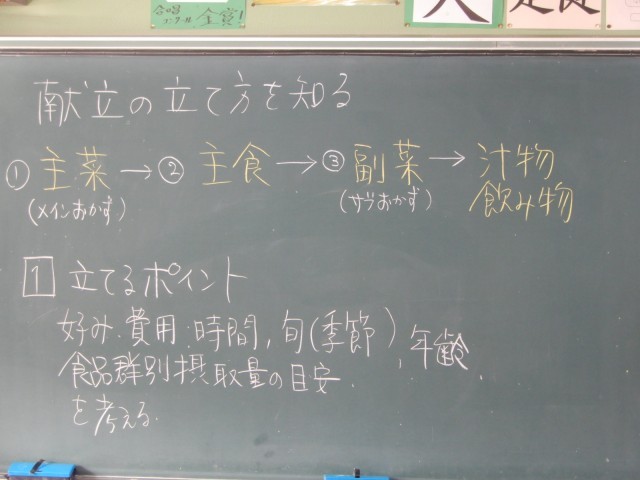 合唱
コンクール 金賞!
献立の立て方を知る
① 主菜 → ② 主食 → ③ 副菜 → 汁物
飲み物
(メインおかず) (サブおかず)
1 立てるポイント
好み、費用、時間、旬(季節)、年齢、
食品群別摂取量の目安、
を考える。